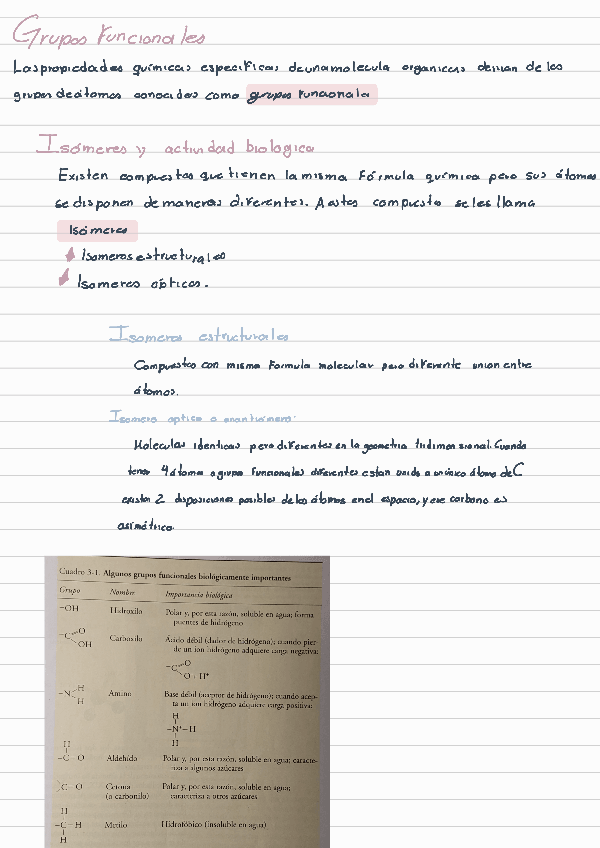 Grupos Funcionales
Las propiedades químicas específicas de una molecula organicas derivan de los
grupos de átomos conocidos como grupos funcionale
Isómeros y actividad biologica
Existen compuestos que tienen la misma Fórmula química pero sus átomos
se disponen de maneras diferentes. A estos compuesto se les llama
Isómeros
Isomeros estructurales
Isomeros opticos.
Isomeros estructurales
Compuestos con misma Formula molecular pero diferente union entre
átomos.
Isomero optico o enantiomero:
Moleculas identicas pero diferentes en la geometria tridimensional. Cuando
4 átomo o grupo funcionales diferentes estan unido a un único átomo de C
existen 2 disposiciones posibles de los átomos en el espacio, y ese carbono es
asimétrico.
Cuadro 3-1. Algunos grupos funcionales biológicamente importantes
Grupo Nombre Importancia biológica
–OH Hidroxilo Polar y, por esta razón, soluble en agua; forma
puentes de hidrógeno
–C O OH Carboxilo Ácido débil (dador de hidrógeno); cuando pier-
de un ion hidrógeno adquiere carga negativa:
–C O O + H⁺
–N H H Amino Base débil (aceptor de hidrógeno); cuando acep-
ta un ion hidrógeno adquiere carga positiva:
H
–N⁺–H
H
H
–C O Aldehído Polar y, por esta razón, soluble en agua; caracte-
riza a algunos azúcares
C O Cetona Polar y, por esta razón, soluble en agua;
(o carbonilo) caracteriza a otros azúcares
H
–C–H Metilo Hidrofóbico (insoluble en agua)
H